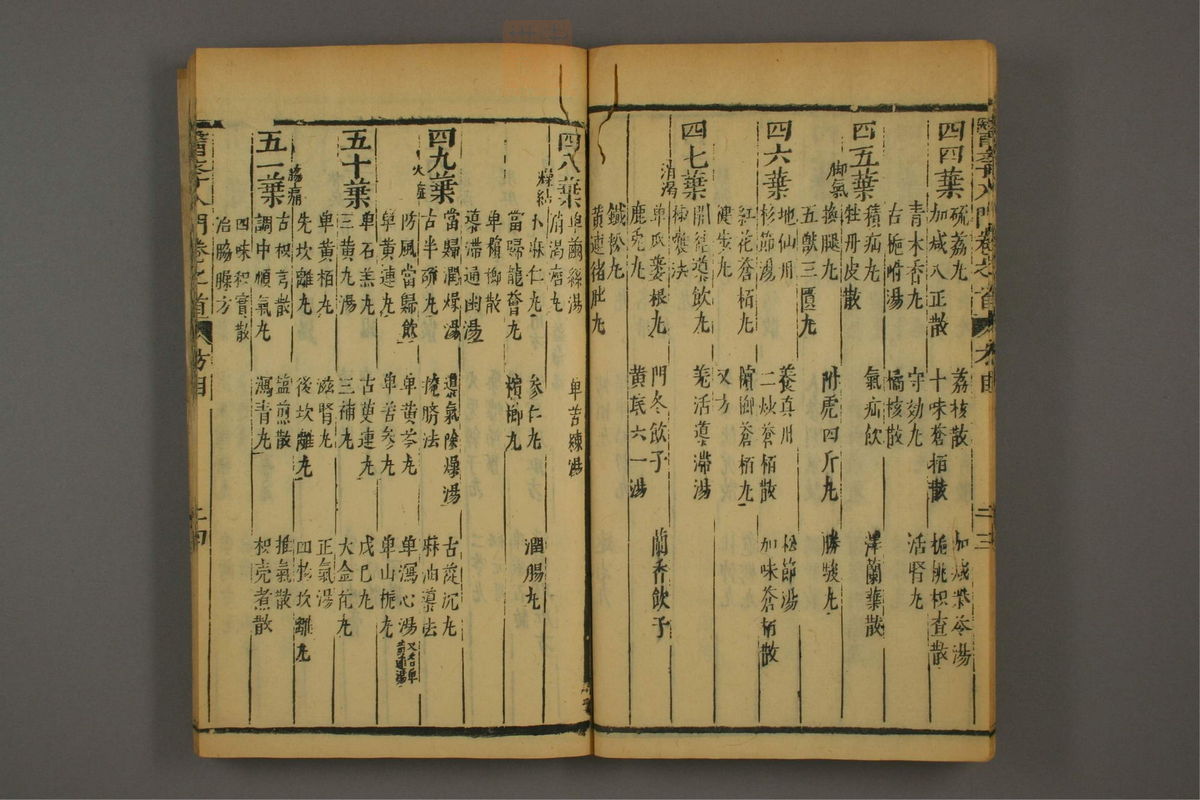 四四葉
硫荔丸 荔核散 加減柴苓湯
加減八正散 十味蒼栢散 梔桃枳查散
青木香丸 守効丸 活腎丸
古梔 湯 橘核散
積疝丸 氣疝飲 澤蘭葉散
四五葉
牡丹皮散
脚氣
換腿丸 附虎四斤丸 勝駿丸
五獸三匱丸
地仙丹 養真丹 松節湯
四六葉
杉節湯 二炒蒼栢散 加味蒼栢散
紅花蒼栢丸 檳榔蒼栢丸
健步丸 又方
開結導飲丸 羌活導滯湯
四七葉
消渴
單瓜蔞根丸 門冬飲子 蘭香飲子
鹿兔丸 黃芪六一湯
鐵粉丸
黃連猪肚丸
四八葉
單繭絲湯 單苦練湯
腎渴磨丸
燥結
卜麻仁丸 參仁丸 潤腸丸
當歸龍薈丸 檳榔丸
單檳榔散
導滯通幽湯
當歸潤燥湯 導氣除燥湯 古蓯沉丸
四九葉
古半硫丸 掩臍法 麻油導法
火症
防風當歸飲 單黃芩丸 單瀉心湯 又名單黃連湯
單黃連丸 單苦參丸 單山梔丸
單石羔丸 古萸連丸 戊巳丸
五十葉
三黃丸湯 三補丸 大金花丸
單黃栢丸 滋腎丸 正氣湯
先坎離丸 後坎離丸 四物坎離丸
脇痛
古枳芎散 鹽煎散 推氣散
五一葉
調中順氣丸 瀉青丸 枳壳煮散
四味枳實散
治脇臊方
醫學入門卷之首 方目 二四